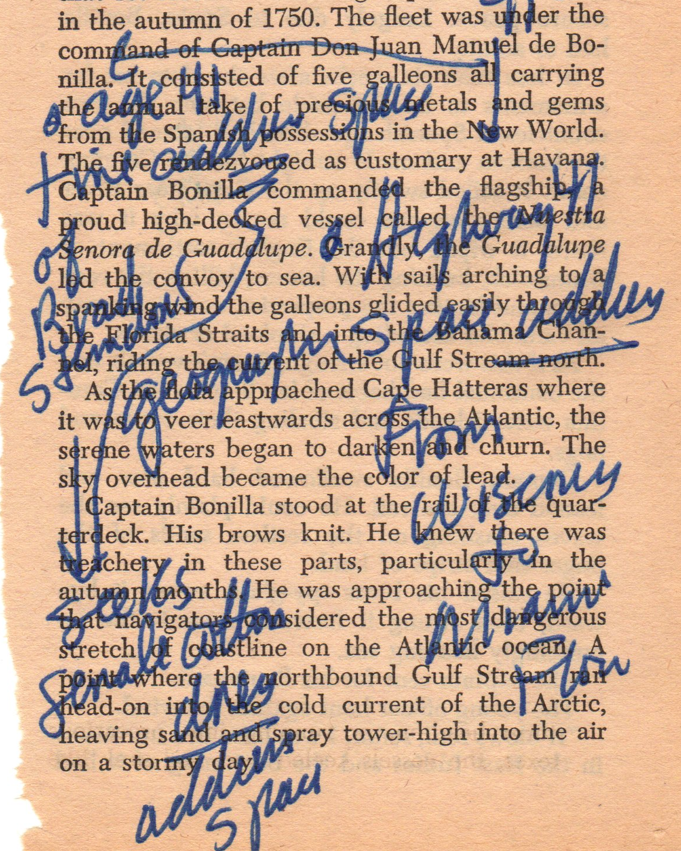 in the autumn of 1750. The fleet was under the
command of Captain Don Juan Manuel de Bo-
nilla. It consisted of five galleons all carrying
the annual take of precious metals and gems
from the Spanish possessions in the New World.
The five rendezvoused as customary at Havana.
Captain Bonilla commanded the flagship, a
proud high-decked vessel called the Nuestra
Senora de Guadalupe. Grandly, the Guadalupe
led the convoy to sea. With sails arching to a
spanking wind the galleons glided easily through
the Florida Straits and into the Bahama Chan-
nel, riding the current of the Gulf Stream north.
As the flota approached Cape Hatteras where
it was to veer eastwards across the Atlantic, the
serene waters began to darken and churn. The
sky overhead became the color of lead.
Captain Bonilla stood at the rail of the quar-
terdeck. His brows knit. He knew there was
treachery in these parts, particularly in the
autumn months. He was approaching the point
that navigators considered the most dangerous
stretch of coastline on the Atlantic ocean. A
point where the northbound Gulf Stream ran
head-on into the cold current of the Arctic,
heaving sand and spray tower-high into the air
on a stormy day.
age 41
address space
time
of
Highway 41
geography space address
From
to
Miami
Seeks
female cotton
dress
address
space